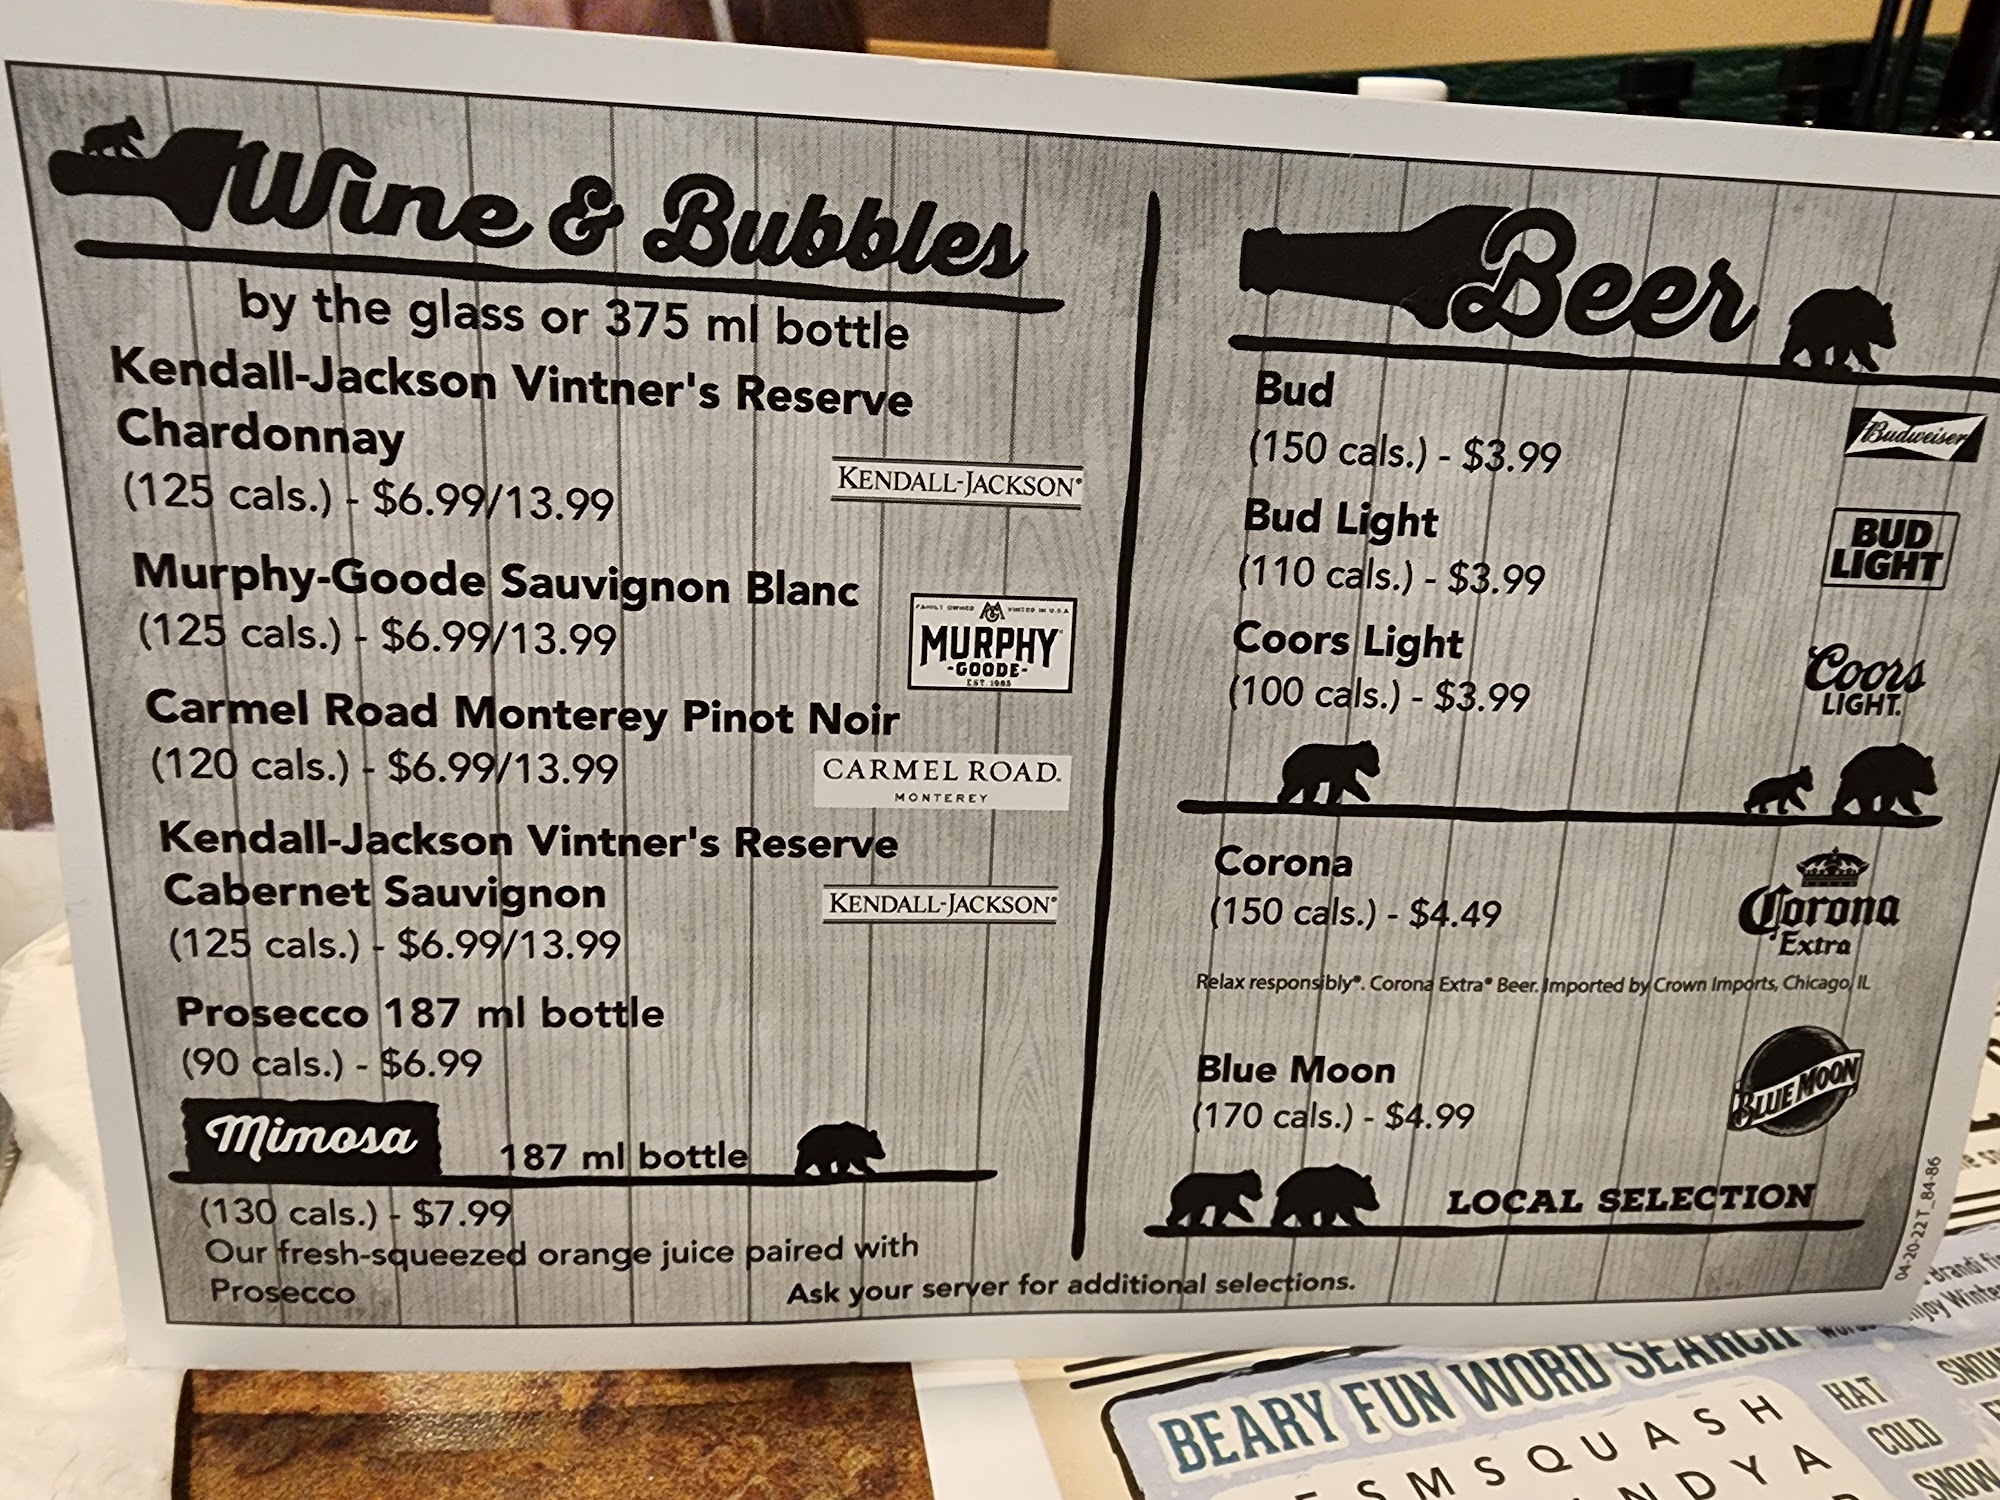 Wine & Bubbles
by the glass or 375 ml bottle
Kendall-Jackson Vintner's Reserve
Chardonnay
(125 cals.) - $6.99/13.99
KENDALL-JACKSON®
Murphy-Goode Sauvignon Blanc
(125 cals.) - $6.99/13.99
FAMILY OWNED MG VINTED IN U.S.A
MURPHY
-GOODE-
EST. 1985
Carmel Road Monterey Pinot Noir
(120 cals.) - $6.99/13.99
CARMEL ROAD.
MONTEREY
Kendall-Jackson Vintner's Reserve
Cabernet Sauvignon
(125 cals.) - $6.99/13.99
KENDALL-JACKSON®
Prosecco 187 ml bottle
(90 cals.) - $6.99
Mimosa 187 ml bottle
(130 cals.) - $7.99
Our fresh-squeezed orange juice paired with
Prosecco
Beer
Bud
(150 cals.) - $3.99
Budweiser
Bud Light
(110 cals.) - $3.99
BUD
LIGHT
Coors Light
(100 cals.) - $3.99
Coors
LIGHT.
Corona
(150 cals.) - $4.49
Corona
Extra
Relax responsibly®. Corona Extra® Beer. Imported by Crown Imports, Chicago, IL
Blue Moon
(170 cals.) - $4.99
BLUE MOON
LOCAL SELECTION
Ask your server for additional selections.
04-20-22 T_84-86
Brandi
Enjoy Winter
BEARY FUN WORD SEARCH
HAT
COLD
SNOW
S M S Q U A S H
N D Y A